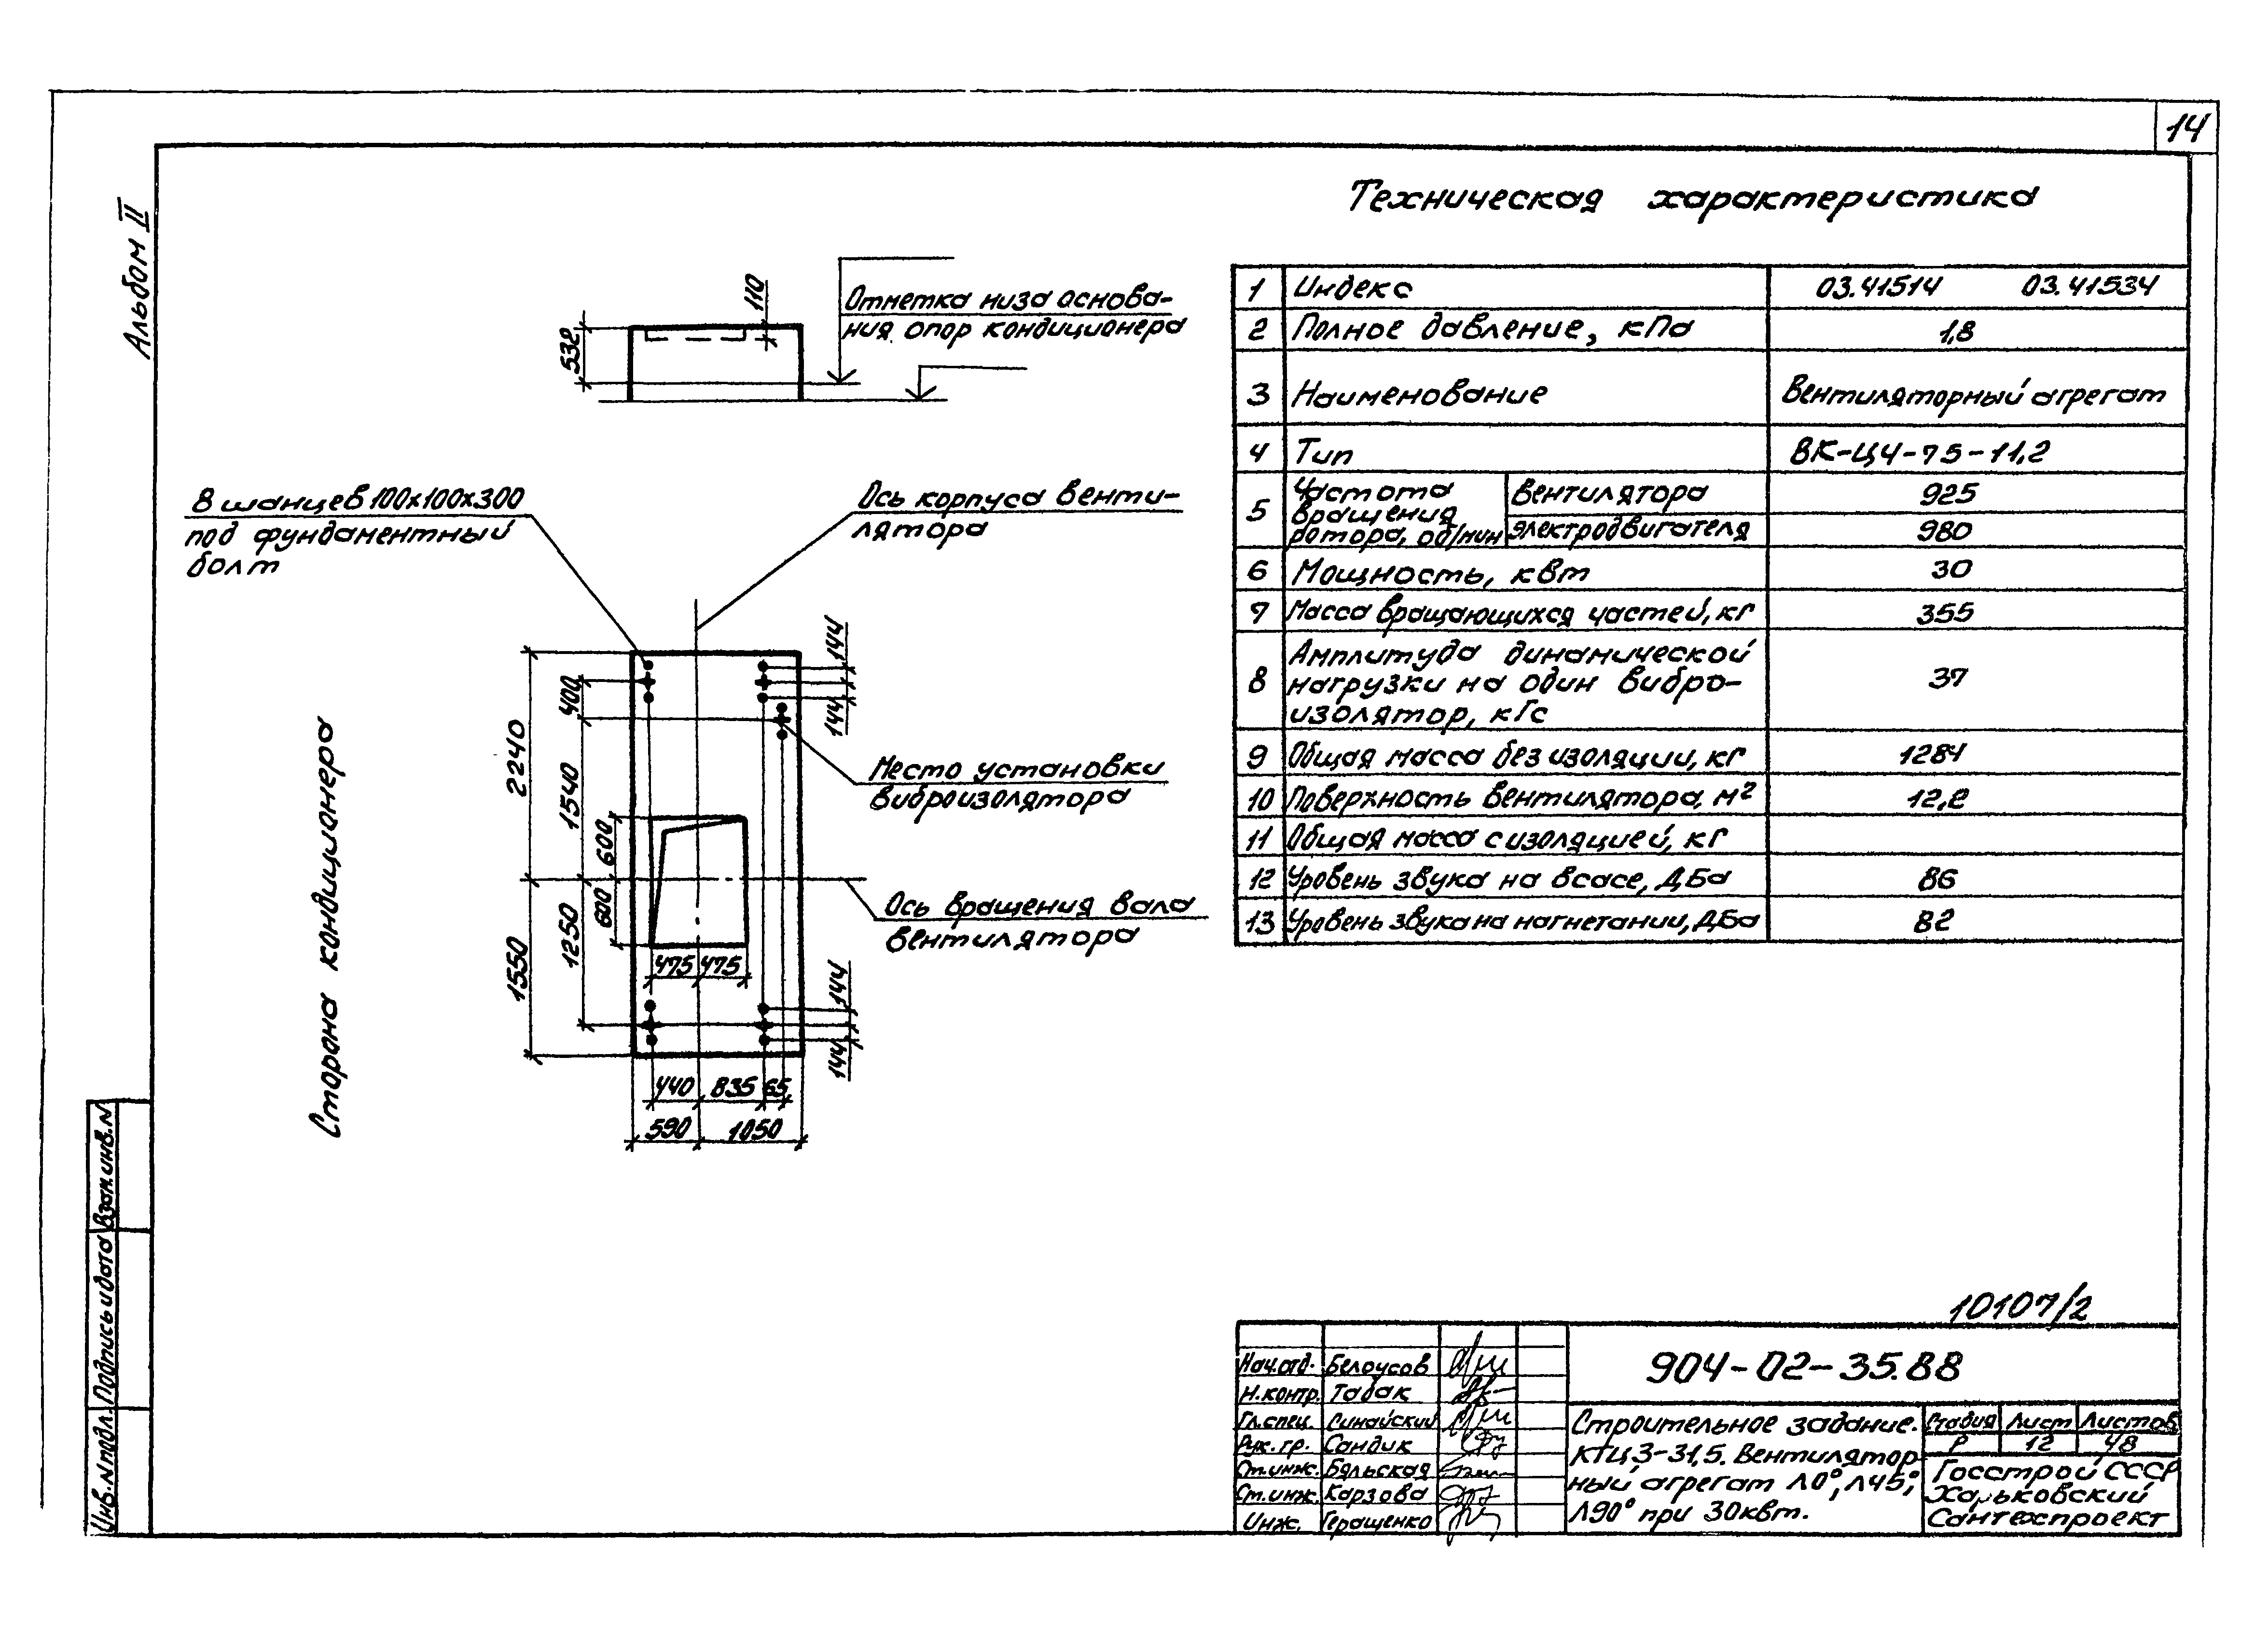 14
Альбом II
Техническая характеристика
1 Индекс 03.41514 03.41534
2 Полное давление, кПа 1,8
3 Наименование Вентиляторный агрегат
4 Тип ВК-Ц4-75-11,2
5 Частота вращения ротора, об/мин вентилятора 925
электродвигателя 980
6 Мощность, квт 30
7 Масса вращающихся частей, кг 355
8 Амплитуда динамической
нагрузки на один вибро-
изолятор, кГс 37
9 Общая масса без изоляции, кг 1284
10 Поверхность вентилятора, м² 12,2
11 Общая масса с изоляцией, кг
12 Уровень звука на всасе, ДБа 86
13 Уровень звука на нагнетании, ДБа 82
532
110
Отметка низа основа-
ния опор кондиционера
8 шанцев 100х100х300
под фундаментный
болт
Ось корпуса венти-
лятора
144
144
400
2240
1540
600
Место установки
виброизолятора
Сторона кондиционера
600
1250
1550
Ось вращения вала
вентилятора
475 475
144
144
440 835 65
590 1050
10107/2
904-02-35.88
Строительное задание.
КТЦ3-31,5. Вентилятор-
ный агрегат Л0°, Л45°,
Л90° при 30квт.
Стадия Лист Листов
Р 12 48
Госстрой СССР
Харьковский
Сантехпроект
Нач.отд. Белоусов
Н.контр. Табак
Гл.спец. Синайский
Рук.гр. Сандик
Ст.инж. Бяльская
Ст.инж. Карзова
Инж. Геращенко
Взам.инв.N
Подпись и дата
Инв.N подл.